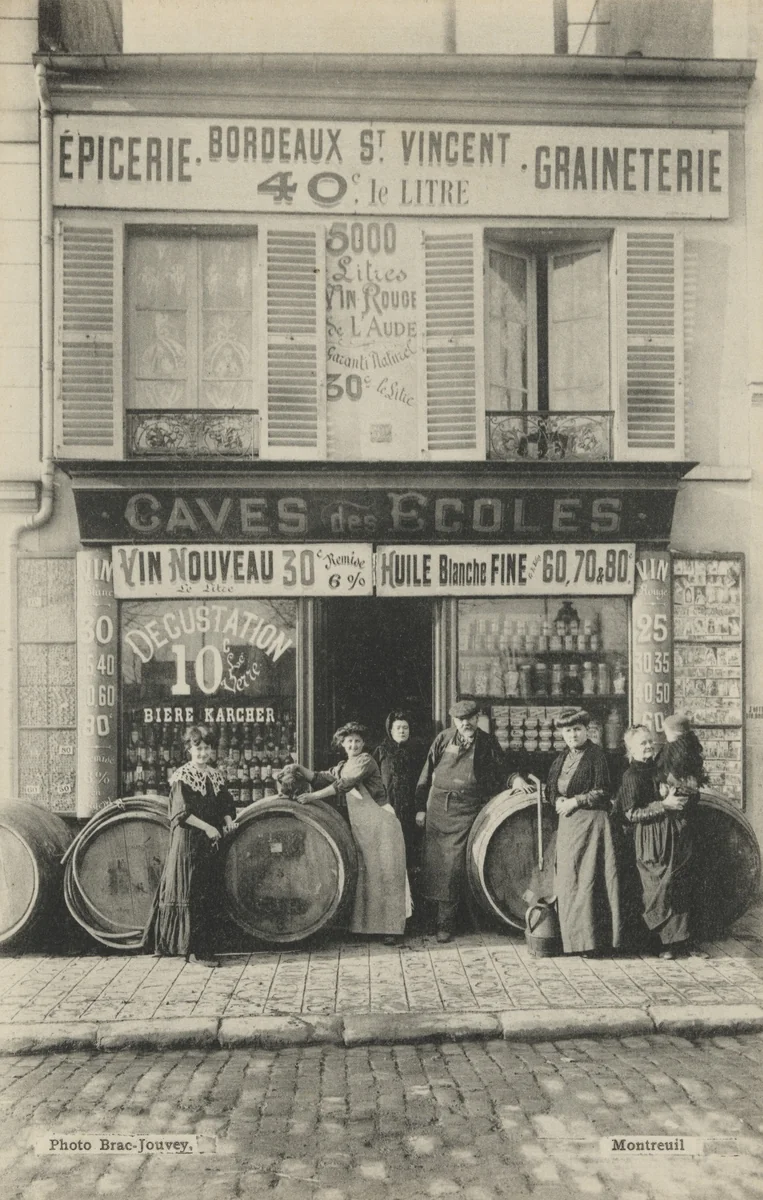 ÉPICERIE · BORDEAUX ST VINCENT · GRAINETERIE
40c. le LITRE
5000
Litres
VIN ROUGE
de L'AUDE
Garanti Naturel
30c le Litre
· CAVES des ECOLES ·
VIN NOUVEAU 30c Remise
Le Litre 6 %
HUILE Blanche FINE 60, 70 & 80c
VIN
Blanc
30
35 40
50 60
80
DEGUSTATION
10c Le Verre
BIERE KARCHER
VIN
Rouge
25
30 35
40 50
60
Photo Brac-Jouvey.
Montreuil